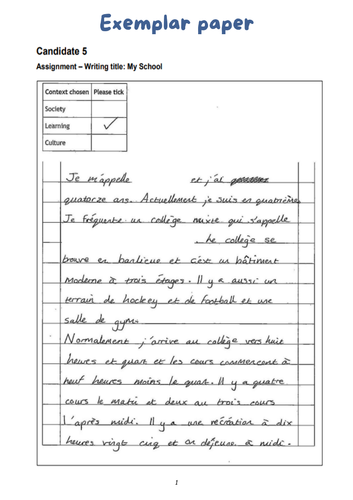 Exemplar paper
Candidate 5
Assignment – Writing title: My School
Context chosen Please tick
Society
Learning ✓
Culture
Je m'appelle et j'ai
quatorze ans. Actuellement je suis en quatrième
Je fréquente un collège mixte qui s'appelle
. Le collège se
trouve en banlieue et c'est un bâtiment
moderne à trois étages. Il y a aussi un
terrain de hockey et de football et une
salle de gym.
Normalement j'arrive au collège vers huit
heures et quart et les cours commencent à
neuf heures moins le quart. Il y a quatre
cours le matin et deux ou trois cours
l'après midi. Il y a une récréation à dix
heures vingt cinq et on déjeune à midi.
1